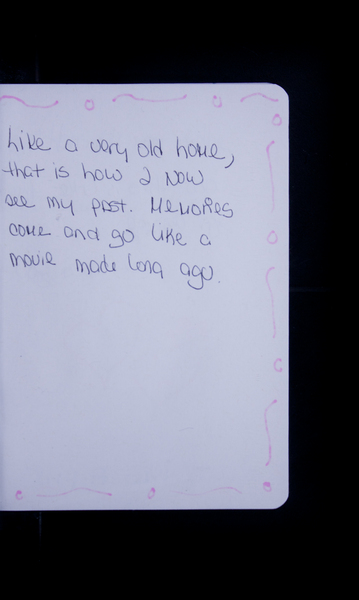 Like a very old home,
that is how I now
see my past. Memories
come and go like a
movie made long ago.